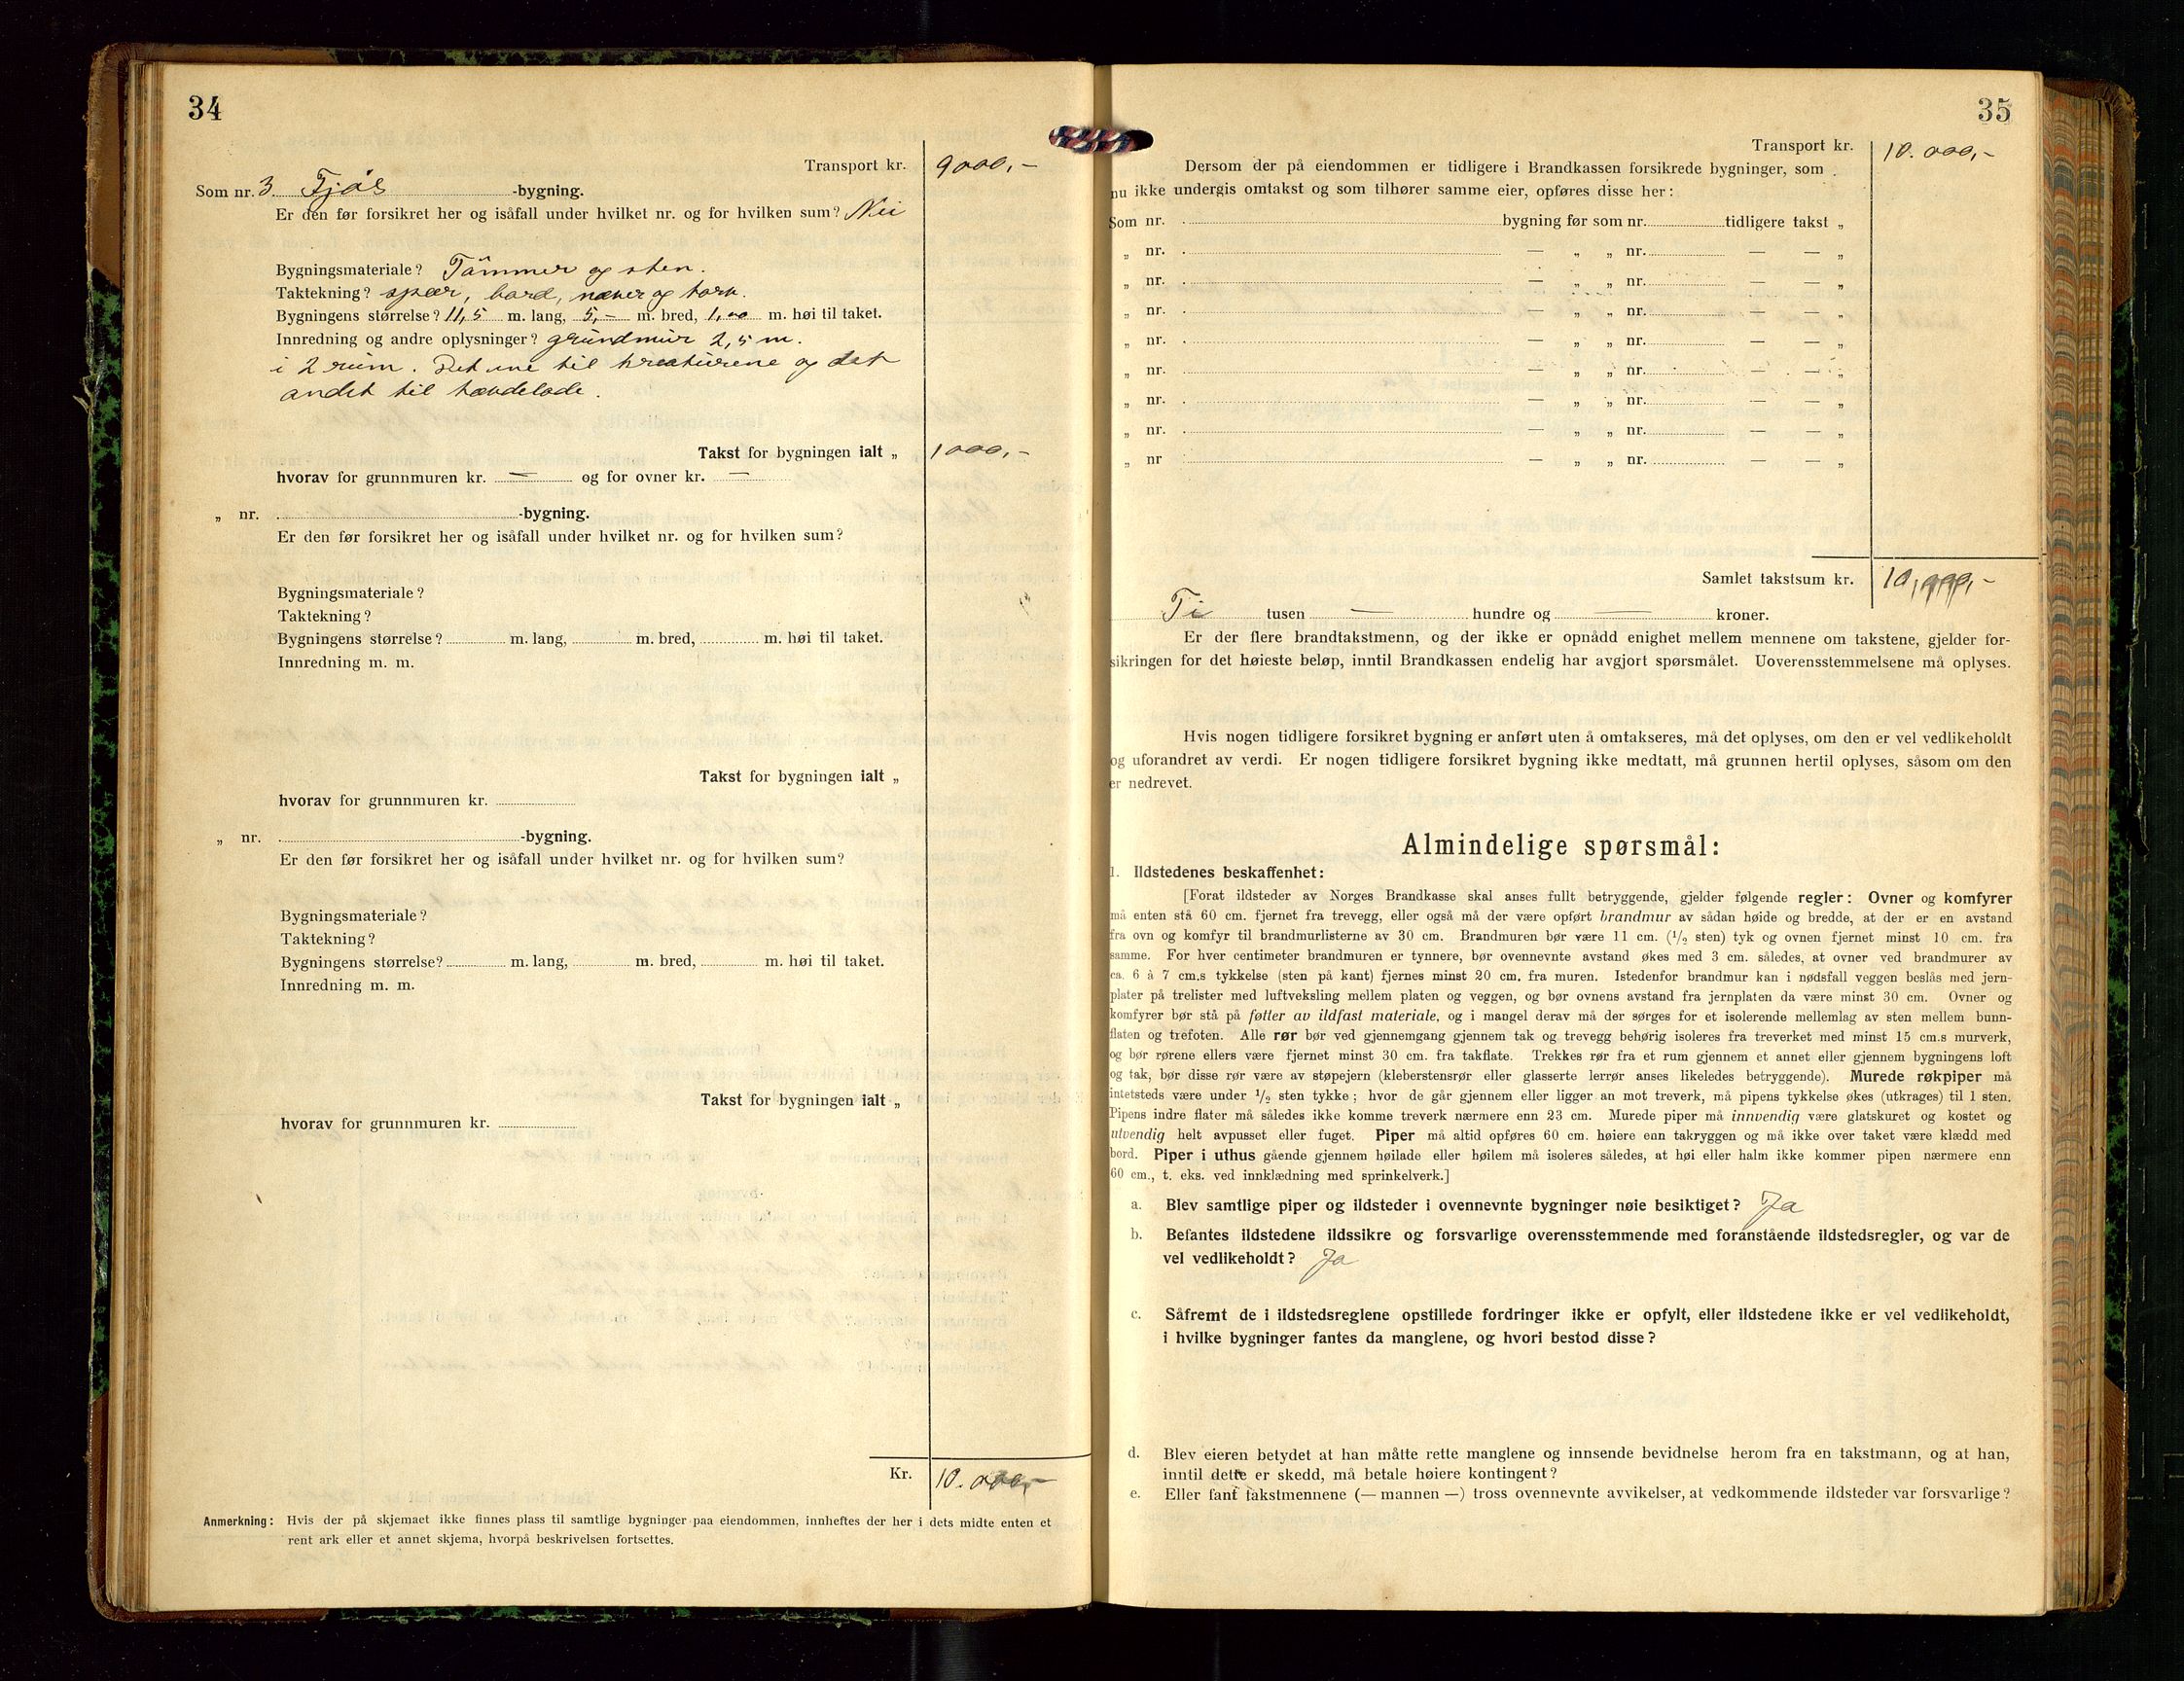 34
Transport kr. 9000,-
Som nr. 3 Fjøs -bygning.
Er den før forsikret her og isåfall under hvilket nr. og for hvilken sum? Nei
Bygningsmateriale? Tømmer og sten.
Taktekning? spær, bord, næver og torv.
Bygningens størrelse? 11,5 m. lang, 5,- m. bred, 1,00 m. høi til taket.
Innredning og andre oplysninger? grundmur 2,5 m.
i 2 rum. Det ene til kreaturene og det
andet til tændelade.
Takst for bygningen ialt „ 1000,-
hvorav for grunnmuren kr. — og for ovner kr. —
„ nr. -bygning.
Er den før forsikret her og isåfall under hvilket nr. og for hvilken sum?
Bygningsmateriale?
Taktekning?
Bygningens størrelse? m. lang, m. bred, m. høi til taket.
Innredning m. m.
Takst for bygningen ialt „
hvorav for grunnmuren kr.
„ nr. -bygning.
Er den før forsikret her og isåfall under hvilket nr. og for hvilken sum?
Bygningsmateriale?
Taktekning?
Bygningens størrelse? m. lang, m. bred, m. høi til taket.
Innredning m. m.
Takst for bygningen ialt „
hvorav for grunnmuren kr.
Kr. 10.000,-
Anmerkning: Hvis der på skjemaet ikke finnes plass til samtlige bygninger paa eiendommen, innheftes der her i dets midte enten et
rent ark eller et annet skjema, hvorpå beskrivelsen fortsettes.
35
Transport kr. 10.000,-
Dersom der på eiendommen er tidligere i Brandkassen forsikrede bygninger, som
nu ikke undergis omtakst og som tilhører samme eier, opføres disse her:
Som nr. bygning før som nr. tidligere takst „
„ nr. — „ „ nr. — — „
„ nr. — „ „ nr. — — „
„ nr. — „ „ nr. — — „
„ nr. — „ „ nr. — — „
„ nr. — „ „ nr. — — „
„ nr. — „ „ nr. — — „
„ nr. — „ „ nr. — — „
„ nr — „ „ nr. — — „
Samlet takstsum kr. 10,000,-
Ti tusen — hundre og — kroner.
Er der flere brandtakstmenn, og der ikke er opnådd enighet mellem mennene om takstene, gjelder for-
sikringen for det høieste beløp, inntil Brandkassen endelig har avgjort spørsmålet. Uoverensstemmelsene må oplyses.
Hvis nogen tidligere forsikret bygning er anført uten å omtakseres, må det oplyses, om den er vel vedlikeholdt
og uforandret av verdi. Er nogen tidligere forsikret bygning ikke medtatt, må grunnen hertil oplyses, såsom om den
er nedrevet.
Almindelige spørsmål:
1. Ildstedenes beskaffenhet:
[Forat ildsteder av Norges Brandkasse skal anses fullt betryggende, gjelder følgende regler: Ovner og komfyrer
må enten stå 60 cm. fjernet fra trevegg, eller også må der være opført brandmur av sådan høide og bredde, at der er en avstand
fra ovn og komfyr til brandmurlisterne av 30 cm. Brandmuren bør være 11 cm. (1/2 sten) tyk og ovnen fjernet minst 10 cm. fra
samme. For hver centimeter brandmuren er tynnere, bør ovennevnte avstand økes med 3 cm. således, at ovner ved brandmurer av
ca. 6 à 7 cm.s tykkelse (sten på kant) fjernes minst 20 cm. fra muren. Istedenfor brandmur kan i nødsfall veggen beslås med jern-
plater på trelister med luftveksling mellem platen og veggen, og bør ovnens avstand fra jernplaten da være minst 30 cm. Ovner og
komfyrer bør stå på føtter av ildfast materiale, og i mangel derav må der sørges for et isolerende mellemlag av sten mellem bunn-
flaten og trefoten. Alle rør bør ved gjennemgang gjennem tak og trevegg behørig isoleres fra treverket med minst 15 cm.s murverk,
og bør rørene ellers være fjernet minst 30 cm. fra takflate. Trekkes rør fra et rum gjennem et annet eller gjennem bygningens loft
og tak, bør disse rør være av støpejern (kleberstensrør eller glasserte lerrør anses likeledes betryggende). Murede røkpiper må
intetsteds være under 1/2 sten tykke; hvor de går gjennem eller ligger an mot treverk, må pipens tykkelse økes (utkrages) til 1 sten.
Pipens indre flater må således ikke komme treverk nærmere enn 23 cm. Murede piper må innvendig være glatskuret og kostet og
utvendig helt avpusset eller fuget. Piper må altid opføres 60 cm. høiere enn takryggen og må ikke over taket være klædd med
bord. Piper i uthus gående gjennem høilade eller høilem må isoleres således, at høi eller halm ikke kommer pipen nærmere enn
60 cm., t. eks. ved innklædning med sprinkelverk.]
a. Blev samtlige piper og ildsteder i ovennevnte bygninger nøie besiktiget? Ja
b. Befantes ildstedene ildssikre og forsvarlige overensstemmende med foranstående ildstedsregler, og var de
vel vedlikeholdt? Ja
c. Såfremt de i ildstedsreglene opstillede fordringer ikke er opfylt, eller ildstedene ikke er vel vedlikeholdt,
i hvilke bygninger fantes da manglene, og hvori bestod disse?
d. Blev eieren betydet at han måtte rette manglene og innsende bevidnelse herom fra en takstmann, og at han,
inntil dette er skedd, må betale høiere kontingent?
e. Eller fant takstmennene (— mannen —) tross ovennevnte avvikelser, at vedkommende ildsteder var forsvarlige?